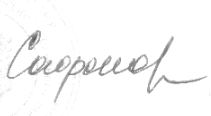 Сафронов